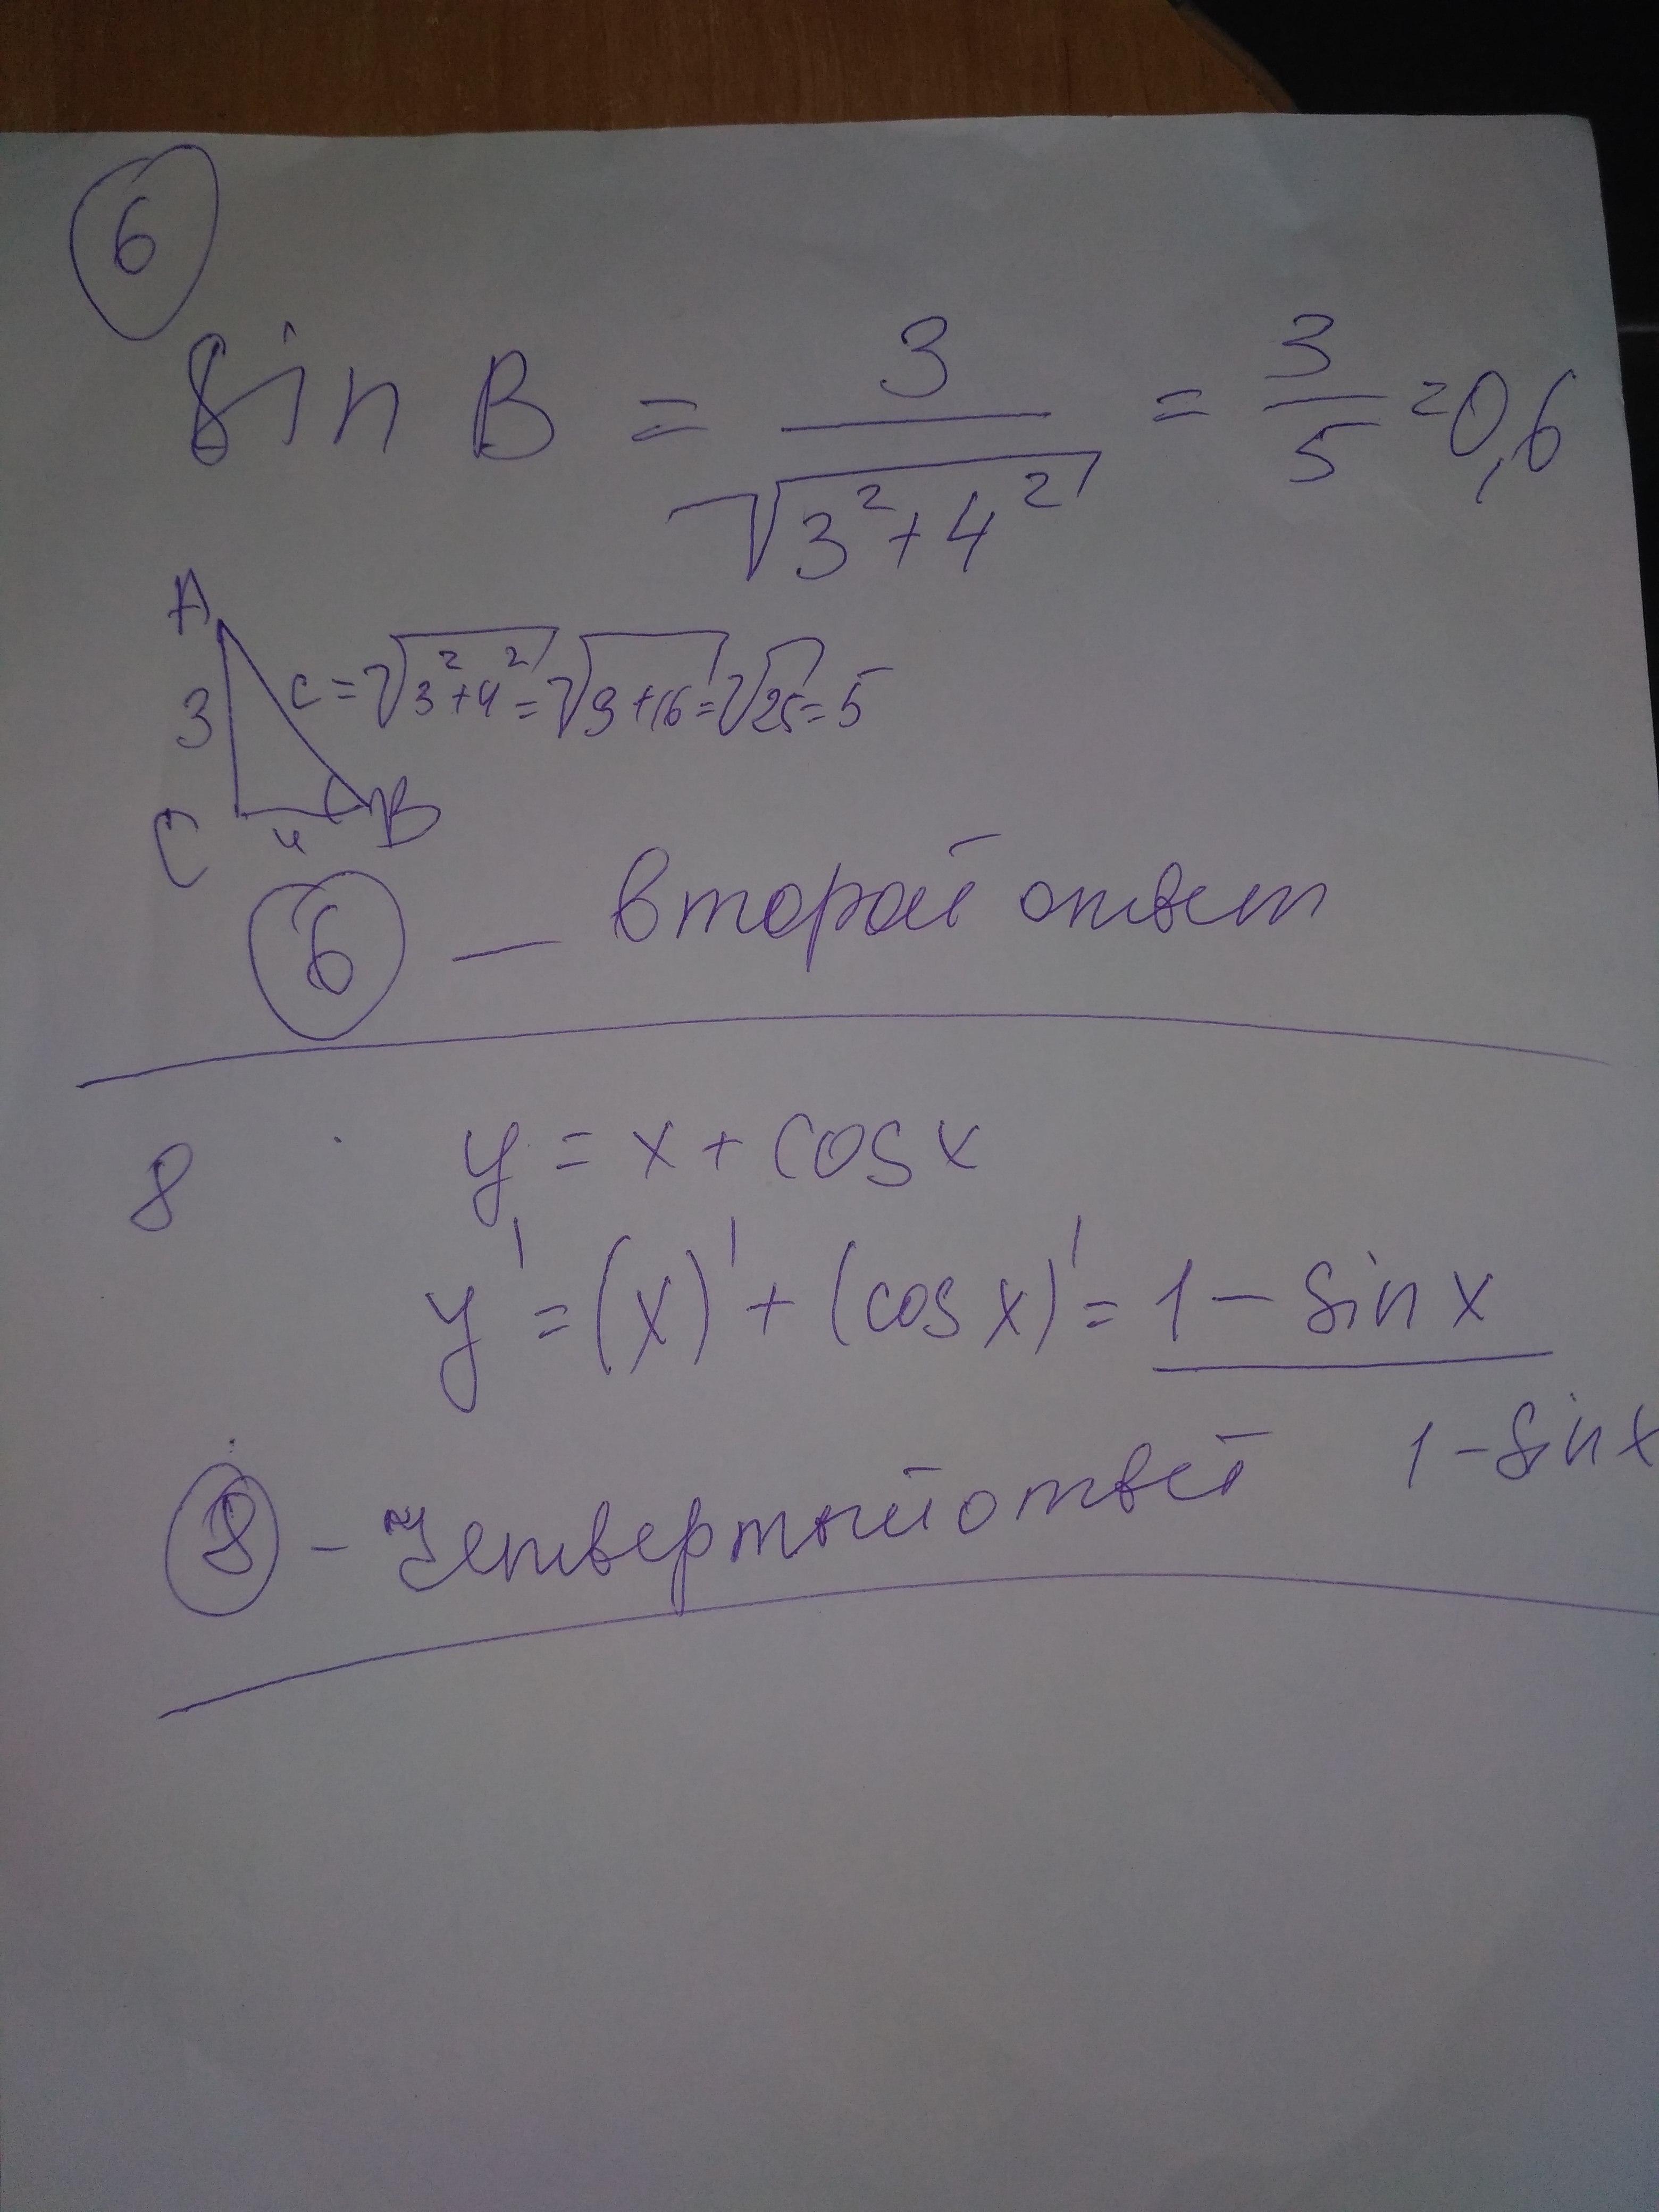 6
sin B = 3/√(3²+4²) = 3/5 = 0,6
A
3 c = √(3²+4²) = √(9+16) = √25 = 5
C 4 B
6 — второй ответ
8 y = x + cos x
y' = (x)' + (cos x)' = 1 - sin x
8 - Четвертый ответ 1 - sin x